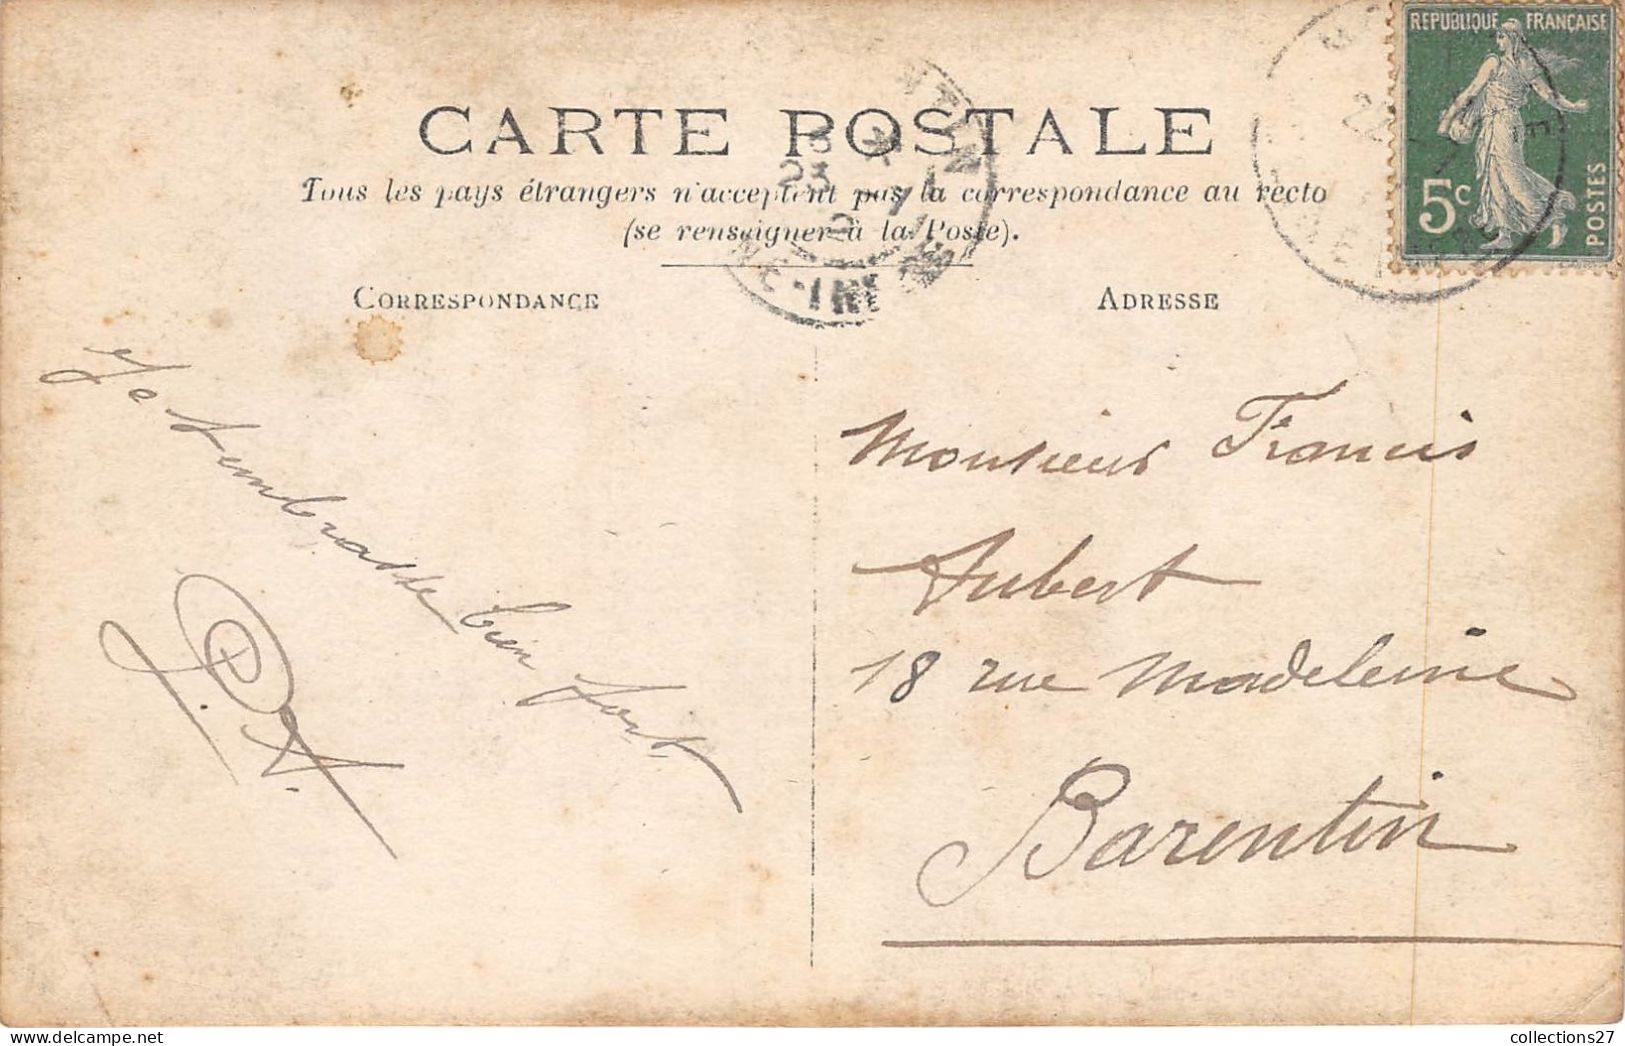 REPUBLIQUE FRANÇAISE
5c
POSTES
CARTE POSTALE
Tous les pays étrangers n'acceptent pas la correspondance au recto
(se renseigner à la Poste).
CORRESPONDANCE
ADRESSE
23
22
Je t'embrasse bien fort
J. A.
Monsieur Francis
Aubert
18 rue Madeleine
Barentin
collections27